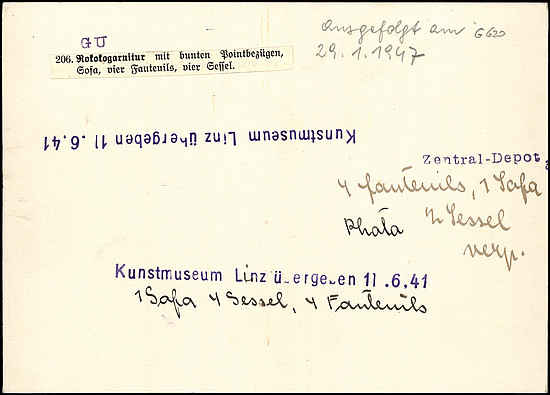 GU
206. Rokokogarnitur mit bunten Pointbezügen,
Sofa, vier Fauteuils, vier Sessel.
Ausgefolgt am G620
29.1.1947
Kunstmuseum Linz übergeben 11.6.41
Zentral-Depot
4 fauteuils, 1 Sofa
Phata 4 Sessel
verp.
Kunstmuseum Linz übergeben 11.6.41
1 Sofa 4 Sessel, 4 Fauteuils